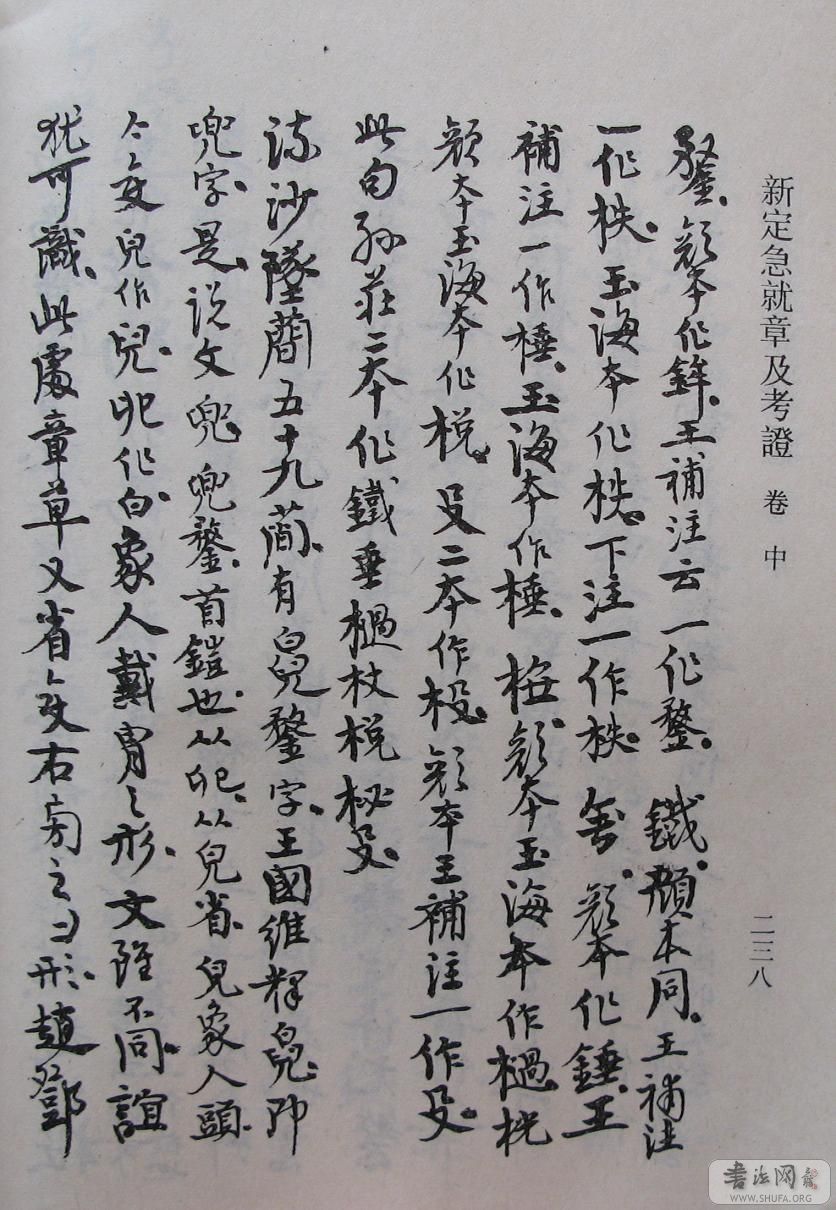 新定急就章及考證 卷中
二三八
鍪。顏本作鉾。王補注云一作鍪。鐵。顏本同。王補注
一作柣。玉海本作柣。下注一作柣。顏本作錘。王
補注一作棰。玉海本作棰。顏本玉海本作檛。梲
顏本玉海本作梲。殳二本作杸。顏本王補注一作殳。
此句孙莊二本作鐵垂檛杖梲柲殳。
流沙墜蕳五十九蕳。有兜鍪字。王國維釋兜。即
兜字。是。说文兜。兜鍪。首鎧也。从兜。从兒省。兒象人頭
今文兒作兒。作白。象人戴胄之形。文雖不同。誼
猶可識。此處章草又省右旁之彐形。趙鄧
書法网
WWW.SHUFA.ORG